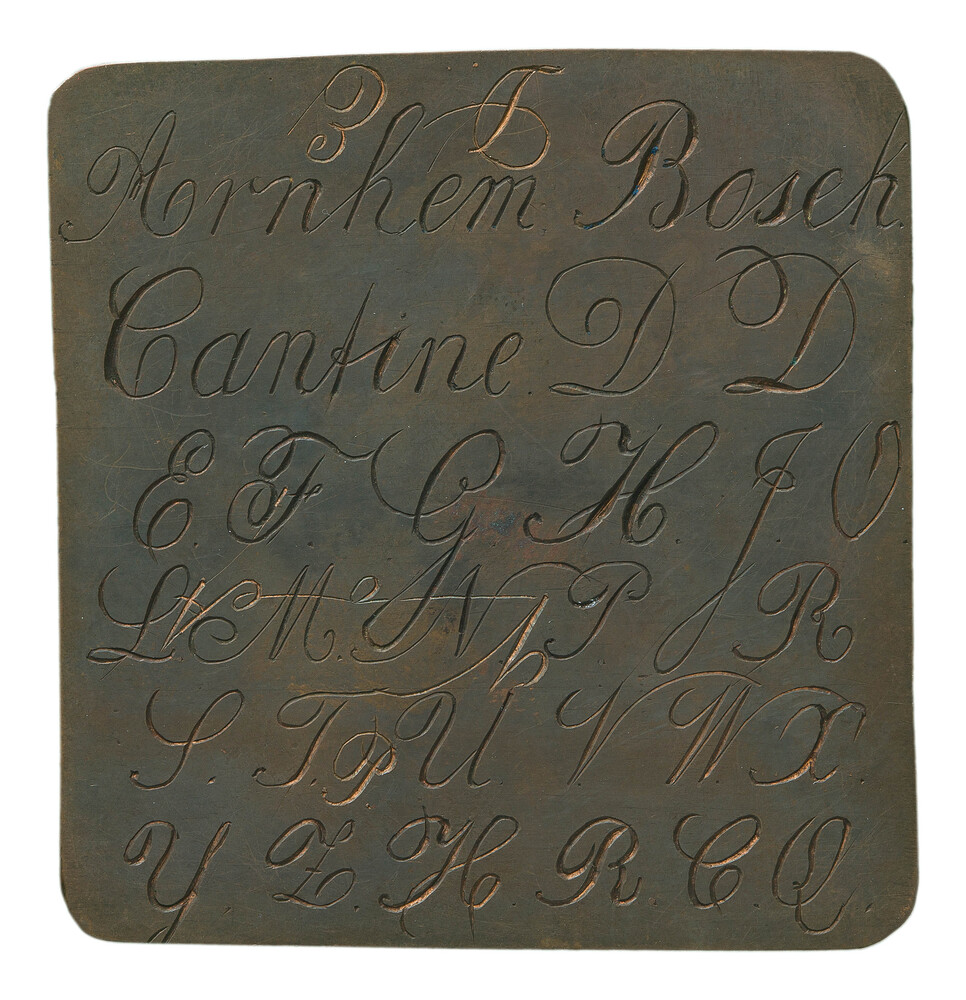 3 T
Arnhem Bosch.
Cantine. D D
E. F G. H. J. O
L. N M. N. P R
S. T. P U. V W. X.
Y Z. H R. C. Q.